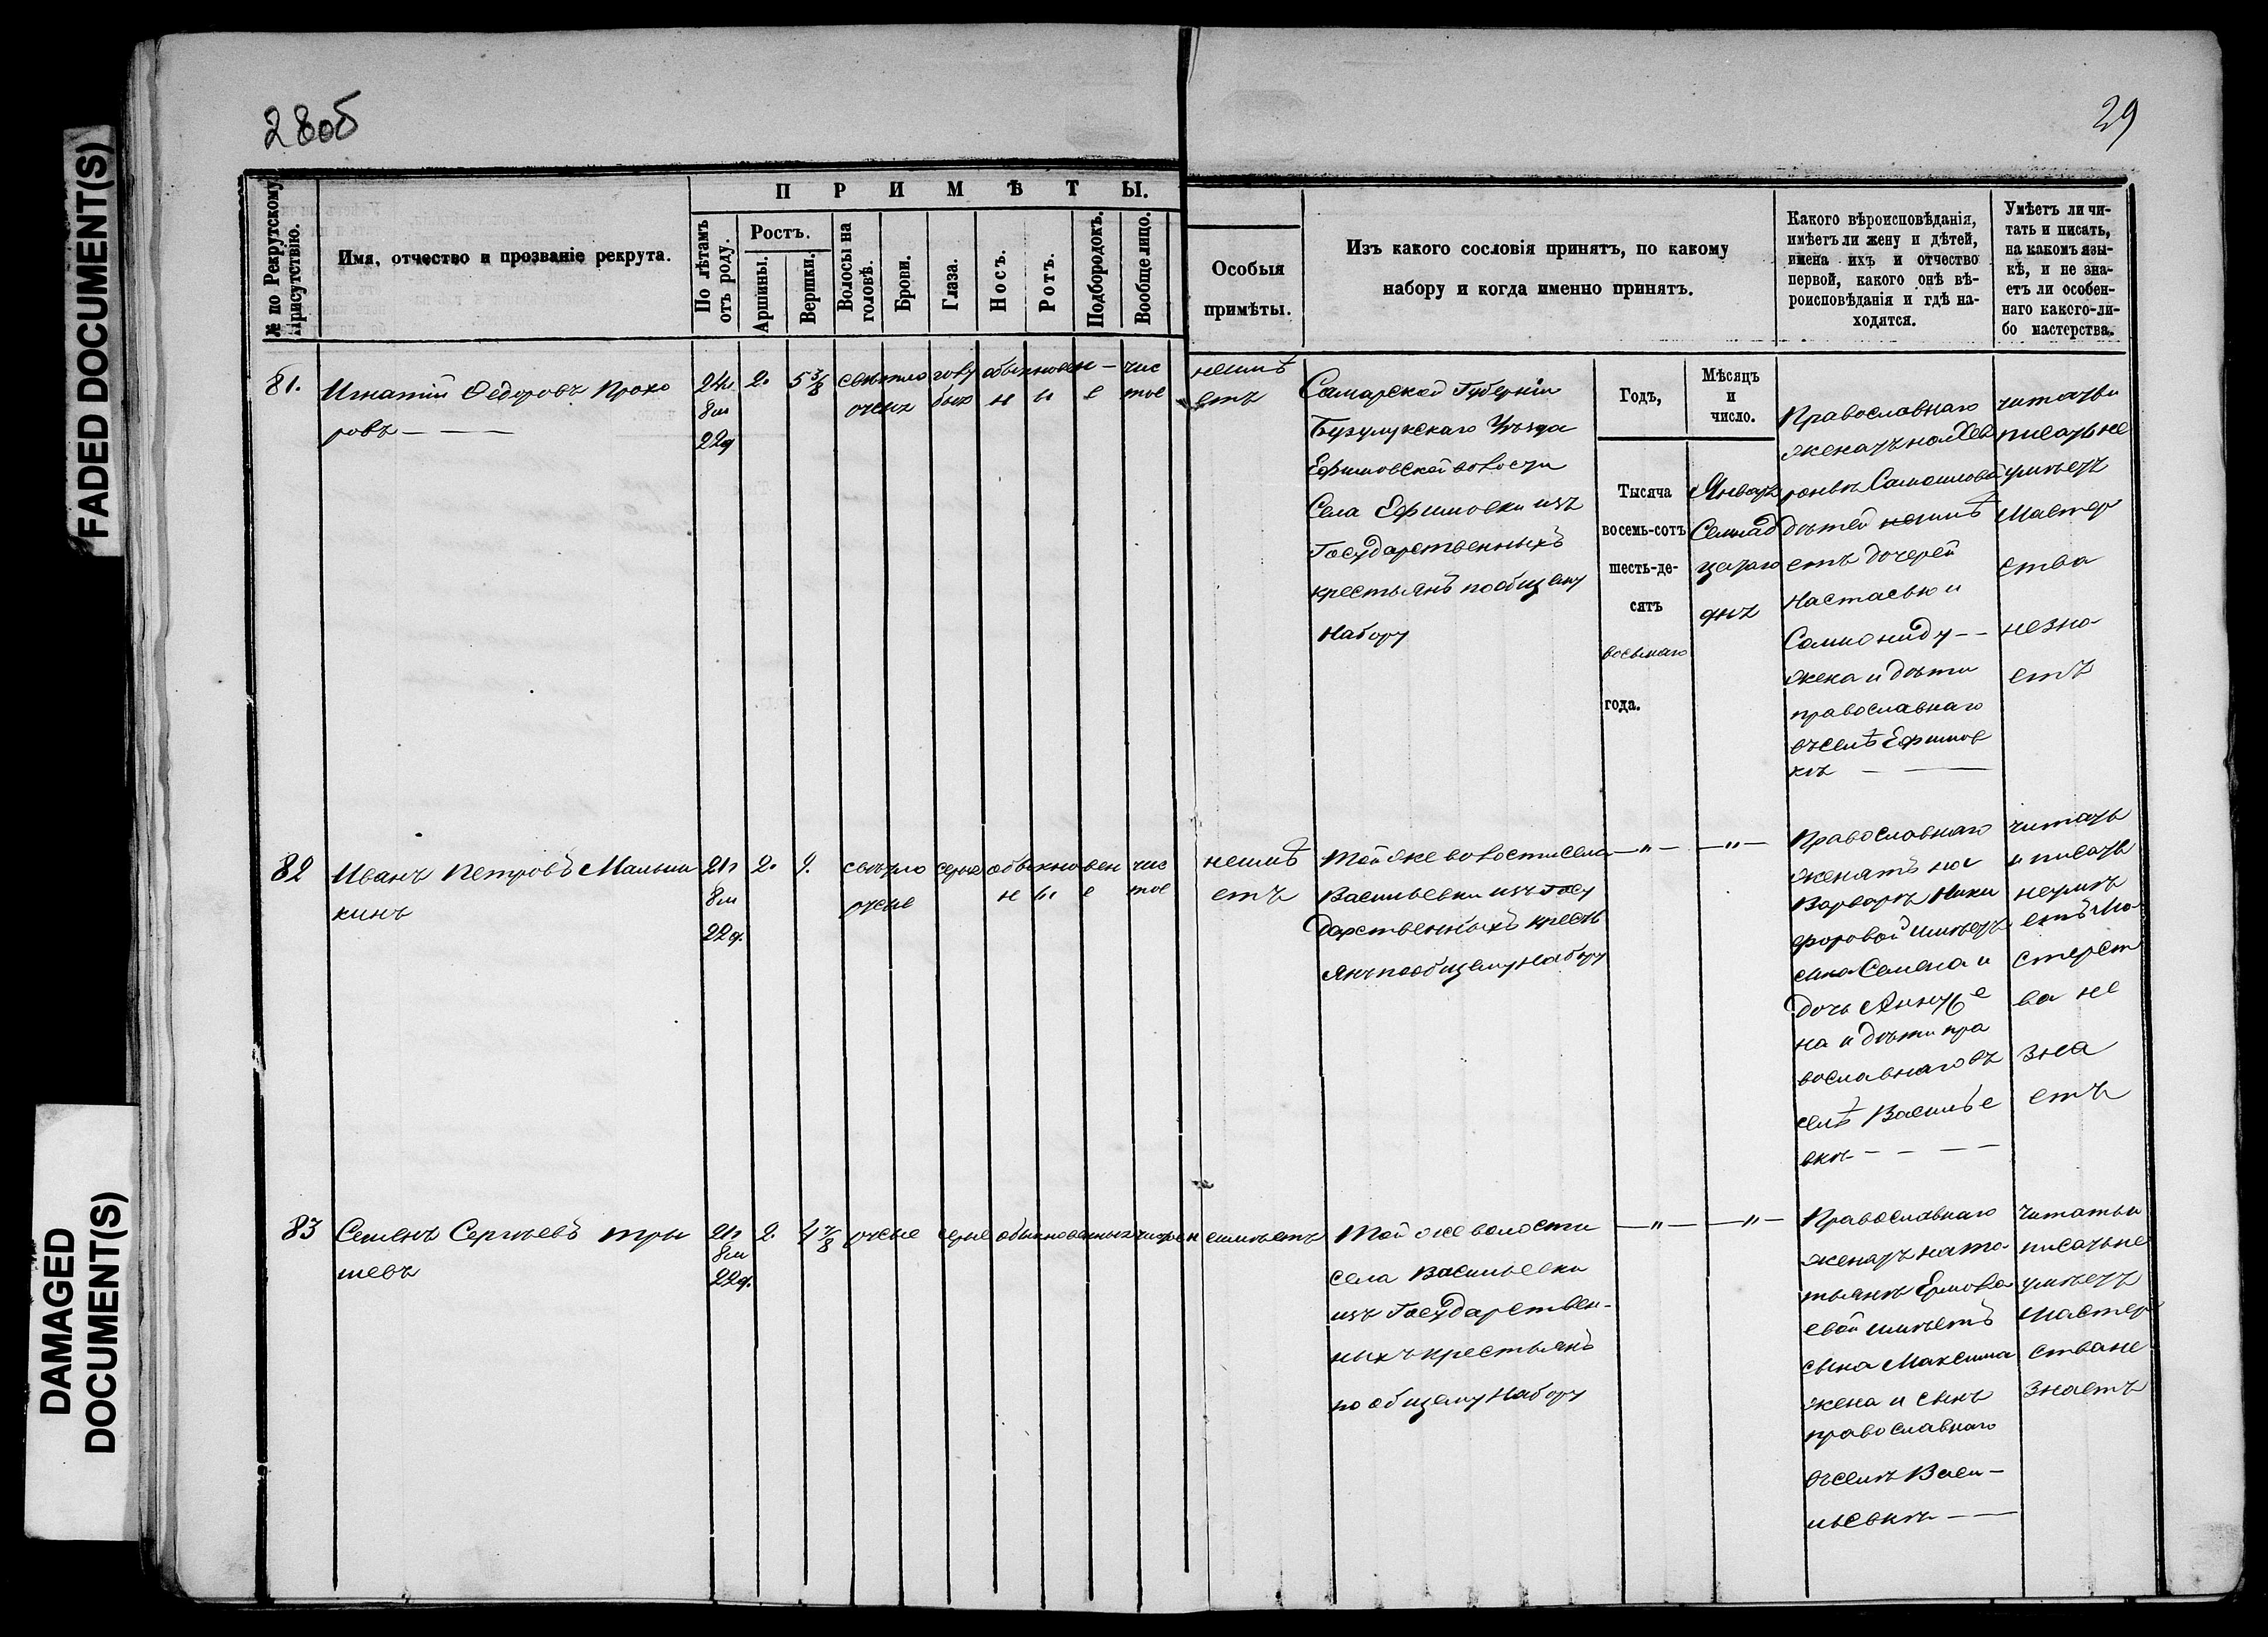 FADED DOCUMENT(S)
DAMAGED
DOCUMENT(S)
28об
29
№ по Рекрутскому Присутствію.
Имя, отчество и прозваніе рекрута.
ПРИМѢТЫ.
По лѣтамъ отъ роду.
Ростъ.
Аршины.
Вершки.
Волосы на головѣ.
Брови.
Глаза.
Носъ.
Ротъ.
Подбородокъ.
Вообще лицо.
Особыя
примѣты.
Изъ какого сословія принятъ, по какому
набору и когда именно принятъ.
Какого вѣроисповѣданія,
имѣетъ ли жену и дѣтей,
имена ихъ и отчество
первой, какого онѣ вѣ-
роисповѣданія и гдѣ на-
ходятся.
Умѣетъ ли чи-
тать и писать,
на какомъ язы-
кѣ, и не зна-
етъ ли особен-
наго какого-ли-
бо мастерства.
81.
Игнатій Ѳедоровъ Прохо
ровъ
24г
8м
22д
2.
5 3/8
свѣтло
голу
обыкновен-
чис
бые
н
ы
е
тое
неимѣ
етъ
Самарской Губерніи
Бузулукскаго Уѣзда
Ефимовской волости
Села Ефимовки изъ
Государственныхъ
крестьянъ пообщему
Набору
Годъ,
Тысяча
восемь-сотъ
шесть-де-
сятъ
восьмаго
года.
Мѣсяцъ
и
число.
Январ
Семнад
цатаго
дня
Православнаго
женатъ на Хев
роньѣ Самойловой
дѣтей неимѣ
етъ дочерей
Настасью и
Соломониду --
жена и дѣти
православнаго
въселѣ Ефимов
кѣ
читать и
писать не
умѣетъ
Мастер
ства
незна
етъ
82
Иванъ Петровъ Малыш
кинъ
21г
8м
22д.
2.
свѣтло
серые
обыкновен
чис
русые
н
ы
е
тое
неимѣ
етъ
Той же волости села
Васильевки изъ Госу
дарственныхъ кресть
янъ пообщему набору
—„—
—„—
Православнаго
женатъ на
Варварѣ Ники
форовой имѣетъ
сына Семена и
дочь Анну же
на и дѣти пра
вославнаго въ
селѣ Василье
вкѣ - - -
читать
и писать
неумѣ
етъ Ма
стерст
ва не
зна
етъ
83
Семенъ Сергѣевъ
шевъ
21г
8м
22д.
2.
4 7/8
русые
серые
обыкновенныя
чистое
неимѣетъ
Той же волости
села Васильевки
изъ Государствен-
ныхъ крестьянъ
по общему Набору
—„—
—„—
Православнаго
женатъ на та-
тьянѣ Ермола
евой имѣетъ
сына Максима
жена и сынъ
православнаго
въселѣ Васи-
льевкѣ - —
читать и
писать не
умѣетъ
мастер
ства не
знаетъ